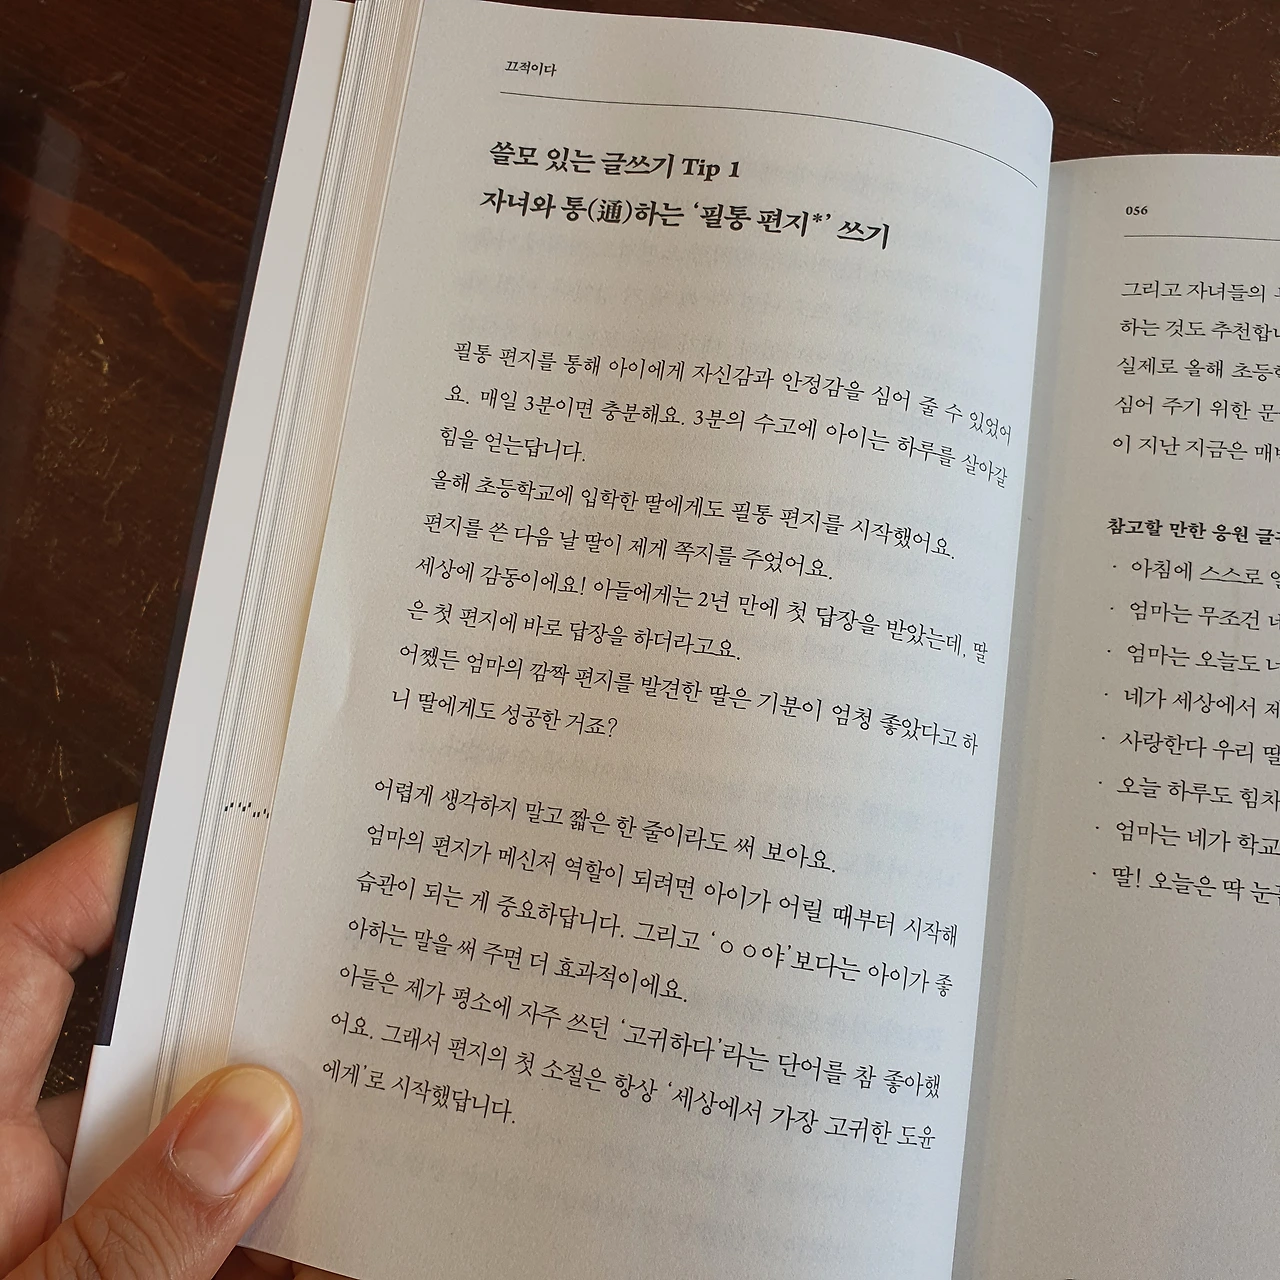 끄적이다
쓸모 있는 글쓰기 Tip 1
자녀와 통(通)하는 ‘필통 편지*’ 쓰기
필통 편지를 통해 아이에게 자신감과 안정감을 심어 줄 수 있었어
요. 매일 3분이면 충분해요. 3분의 수고에 아이는 하루를 살아갈
힘을 얻는답니다.
올해 초등학교에 입학한 딸에게도 필통 편지를 시작했어요.
편지를 쓴 다음 날 딸이 제게 쪽지를 주었어요.
세상에 감동이에요! 아들에게는 2년 만에 첫 답장을 받았는데, 딸
은 첫 편지에 바로 답장을 하더라고요.
어쨌든 엄마의 깜짝 편지를 발견한 딸은 기분이 엄청 좋았다고 하
니 딸에게도 성공한 거죠?
어렵게 생각하지 말고 짧은 한 줄이라도 써 보아요.
엄마의 편지가 메신저 역할이 되려면 아이가 어릴 때부터 시작해
습관이 되는 게 중요하답니다. 그리고 ‘ㅇㅇ야’보다는 아이가 좋
아하는 말을 써 주면 더 효과적이에요.
아들은 제가 평소에 자주 쓰던 ‘고귀하다’라는 단어를 참 좋아했
어요. 그래서 편지의 첫 소절은 항상 ‘세상에서 가장 고귀한 도윤
에게’로 시작했답니다.
056
그리고 자녀들의
하는 것도 추천합니
실제로 올해 초등학
심어 주기 위한 문
이 지난 지금은 매
참고할 만한 응원 글
· 아침에 스스로
· 엄마는 무조건
· 엄마는 오늘도
· 네가 세상에서 제
· 사랑한다 우리 딸
· 오늘 하루도 힘차
· 엄마는 네가 학교
· 딸! 오늘은 딱